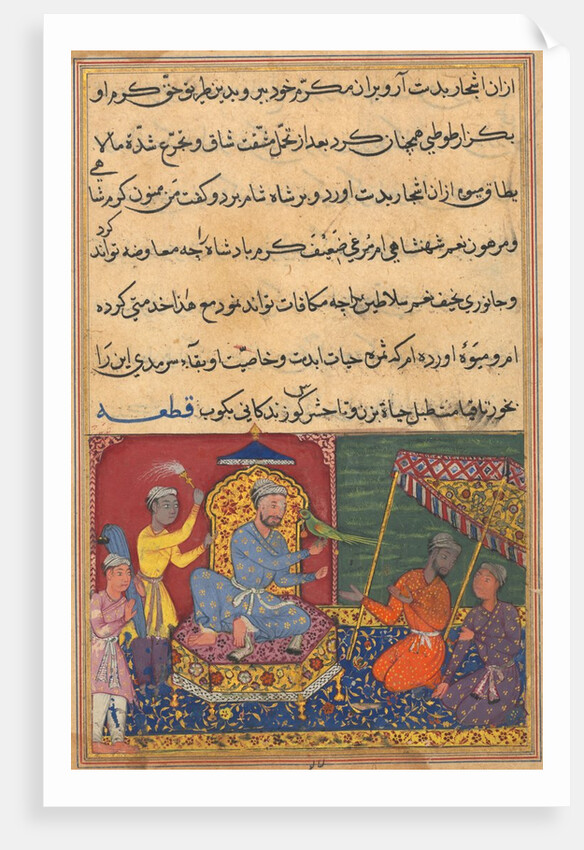 ازان اشجار بدست آرو بران مکرم خود ببر و بدین طریق حق کرم او
بکزار طوطی همچنان کرد بعد از تحمل مشقت شاق و تجرع شدة مالا
یطاق میوه ازان اشجار بدست اورد و بر شاه شام برد و کفت من ممنون کرم شاهی
و مرهون نعم شهنشاهی ام مرغی ضعیف کرم بادشاه را چه معاوضه تواند کرد
و جانوری نحیف نعم سلاطین را چه مکافات تواند نمود مع هذا خدمتی کرده
ام و میوهٔ اورده ام که ثمره حیات ابدست و خاصیت او بقاء سرمدی این را
بخور تا قیامت طبل حیاة بزن و تا حشر کوس زندکانی بکوب قطعه